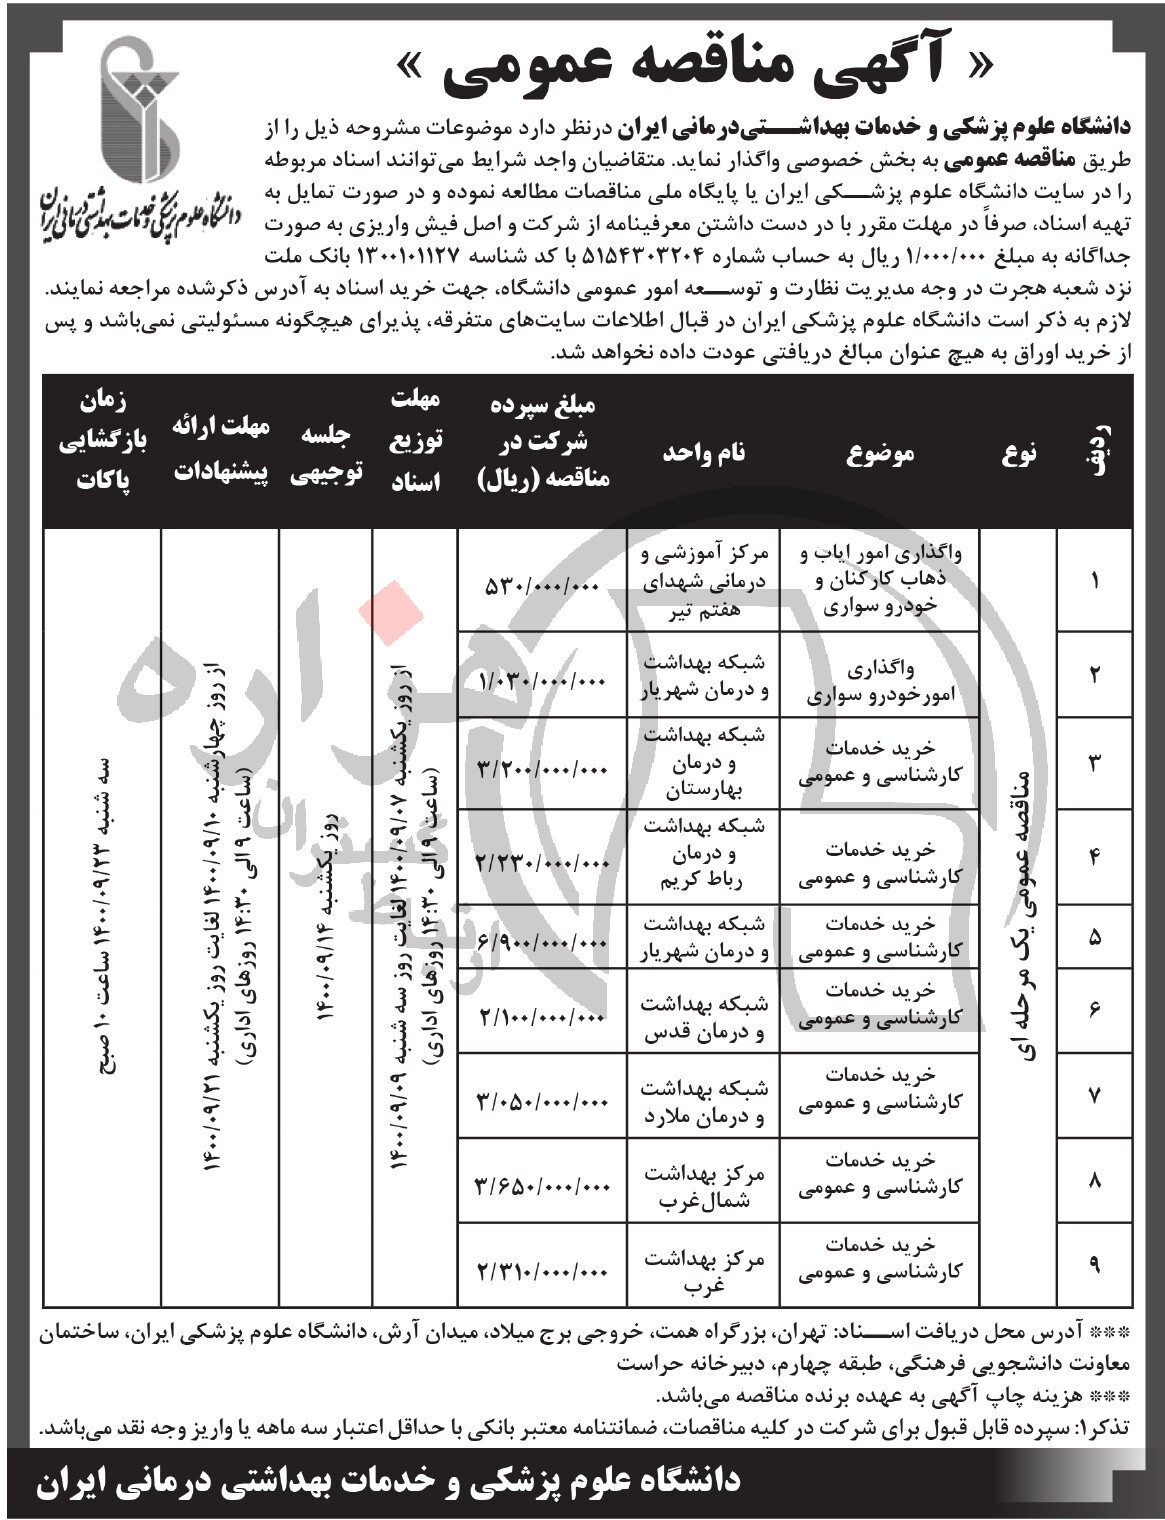 « آگهی مناقصه عمومی »
دانشگاه علوم پزشکی و خدمات بهداشتی درمانی ایران
دانشگاه علوم پزشکی و خدمات بهداشـــتی‌درمانی ایران درنظر دارد موضوعات مشروحه ذیل را از
طریق مناقصه عمومی به بخش خصوصی واگذار نماید. متقاضیان واجد شرایط می‌توانند اسناد مربوطه
را در سایت دانشگاه علوم پزشـــکی ایران یا پایگاه ملی مناقصات مطالعه نموده و در صورت تمایل به
تهیه اسناد، صرفاً در مهلت مقرر با در دست داشتن معرفینامه از شرکت و اصل فیش واریزی به صورت
جداگانه به مبلغ ۱/۰۰۰/۰۰۰ ریال به حساب شماره ۵۱۵۴۳۰۳۲۰۴ با کد شناسه ۱۳۰۰۱۰۱۱۲۷ بانک ملت
نزد شعبه هجرت در وجه مدیریت نظارت و توســـعه امور عمومی دانشگاه، جهت خرید اسناد به آدرس ذکرشده مراجعه نمایند.
لازم به ذکر است دانشگاه علوم پزشکی ایران در قبال اطلاعات سایت‌های متفرقه، پذیرای هیچگونه مسئولیتی نمی‌باشد و پس
از خرید اوراق به هیچ عنوان مبالغ دریافتی عودت داده نخواهد شد.
ردیف
نوع
موضوع
نام واحد
مبلغ سپرده
شرکت در
مناقصه (ریال)
مهلت
توزیع
اسناد
جلسه
توجیهی
مهلت ارائه
پیشنهادات
زمان
بازگشایی
پاکات
مناقصه عمومی یک مرحله ای
۱
واگذاری امور ایاب و
ذهاب کارکنان و
خودرو سواری
مرکز آموزشی و
درمانی شهدای
هفتم تیر
۵۳۰/۰۰۰/۰۰۰
۲
واگذاری
امورخودرو سواری
شبکه بهداشت
و درمان شهریار
۱/۰۳۰/۰۰۰/۰۰۰
۳
خرید خدمات
کارشناسی و عمومی
شبکه بهداشت
و درمان
بهارستان
۳/۲۰۰/۰۰۰/۰۰۰
۴
خرید خدمات
کارشناسی و عمومی
شبکه بهداشت
و درمان
رباط کریم
۲/۲۳۰/۰۰۰/۰۰۰
۵
خرید خدمات
کارشناسی و عمومی
شبکه بهداشت
و درمان شهریار
۶/۹۰۰/۰۰۰/۰۰۰
۶
خرید خدمات
کارشناسی و عمومی
شبکه بهداشت
و درمان قدس
۲/۱۰۰/۰۰۰/۰۰۰
۷
خرید خدمات
کارشناسی و عمومی
شبکه بهداشت
و درمان ملارد
۳/۰۵۰/۰۰۰/۰۰۰
۸
خرید خدمات
کارشناسی و عمومی
مرکز بهداشت
شمال‌غرب
۳/۶۵۰/۰۰۰/۰۰۰
۹
خرید خدمات
کارشناسی و عمومی
مرکز بهداشت
غرب
۲/۳۱۰/۰۰۰/۰۰۰
از روز یکشنبه ۱۴۰۰/۰۹/۰۷ لغایت روز سه شنبه ۱۴۰۰/۰۹/۰۹
(ساعت ۹ الی ۱۴:۳۰ روزهای اداری)
روز یکشنبه ۱۴۰۰/۰۹/۱۴
از روز چهارشنبه ۱۴۰۰/۰۹/۱۰ لغایت روز یکشنبه ۱۴۰۰/۰۹/۲۱
(ساعت ۹ الی ۱۴:۳۰ روزهای اداری)
سه شنبه ۱۴۰۰/۰۹/۲۳ ساعت ۱۰ صبح
هزاره
ارتباط
گستران
*** آدرس محل دریافت اســـناد: تهران، بزرگراه همت، خروجی برج میلاد، میدان آرش، دانشگاه علوم پزشکی ایران، ساختمان
معاونت دانشجویی فرهنگی، طبقه چهارم، دبیرخانه حراست
*** هزینه چاپ آگهی به عهده برنده مناقصه می‌باشد.
تذکر۱: سپرده قابل قبول برای شرکت در کلیه مناقصات، ضمانتنامه معتبر بانکی با حداقل اعتبار سه ماهه یا واریز وجه نقد می‌باشد.
دانشگاه علوم پزشکی و خدمات بهداشتی درمانی ایران